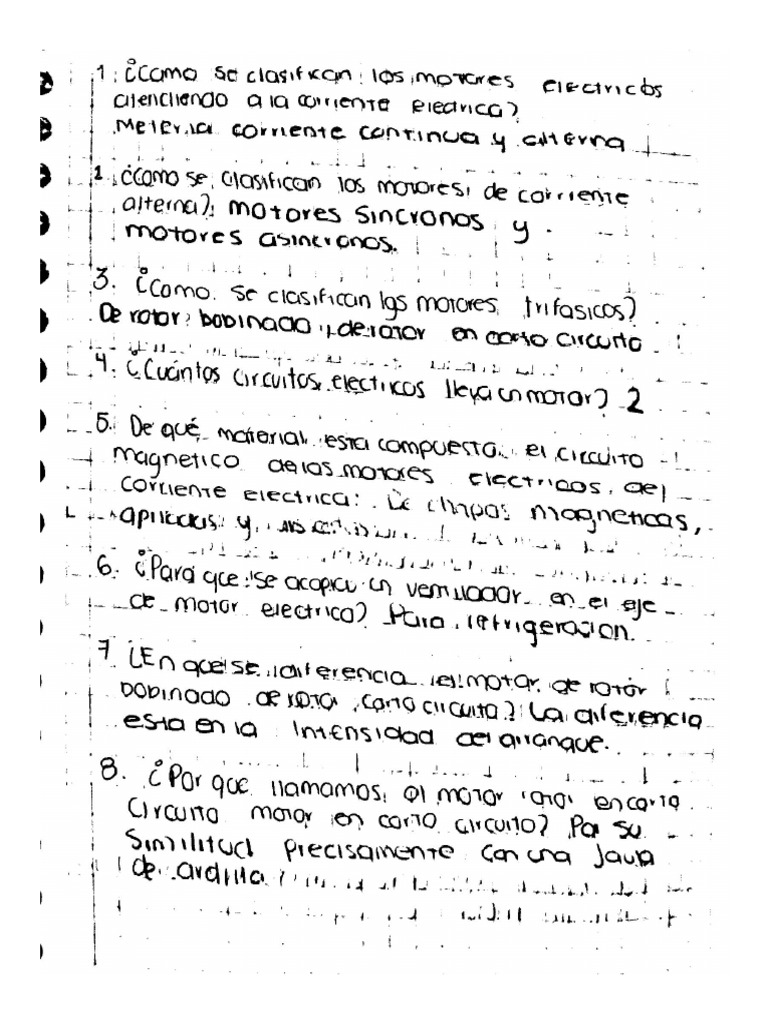 1. ¿Como se clasifican los motores electricos
atendiendo a la corriente electrica?
Meter la corriente continua y alterna
1. ¿Como se clasifican los motores de corriente
alterna? motores sincronos y
motores asincronos.
3. ¿Como se clasifican los motores trifasicos?
De rotor bobinado y de rotor en corto circuito
4. ¿Cuántos circuitos electricos lleva un motor? 2
5. De qué material esta compuesta el circuito
magnetico de los motores electricos, del
corriente electrica: De chapas magneticas,
apiladas y
6. ¿Para que se acopla un ventilador en el eje
de motor electrico? Para refrigeracion.
7 ¿En que se diferencia el motor de rotor
bobinado de rotor corto circuito? La diferencia
esta en la intensidad del arranque.
8. ¿Por que llamamos al motor rotor en corto
circuito motor en corto circuito? Por su
similitud precisamente con una Jaula
de ardilla